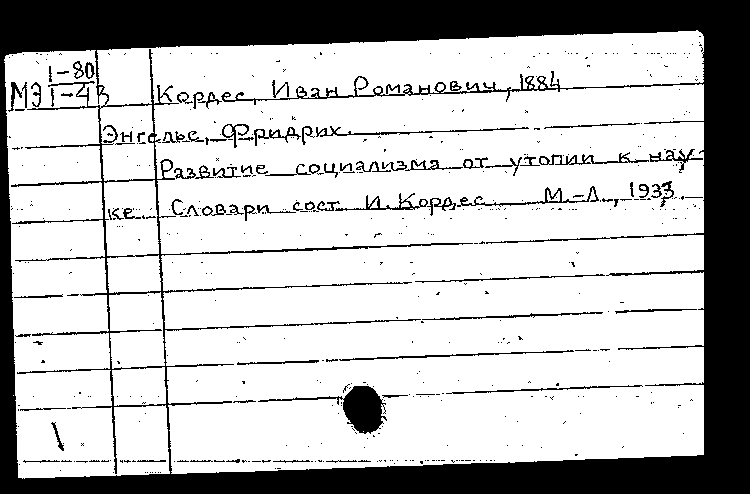 1-80
МЭ 1-43
Кордес, Иван Романович, 1884
Энгельс, Фридрих.
Развитие социализма от утопии к нау-
ке. Словари сост. И. Кордес. М.-Л., 1933.